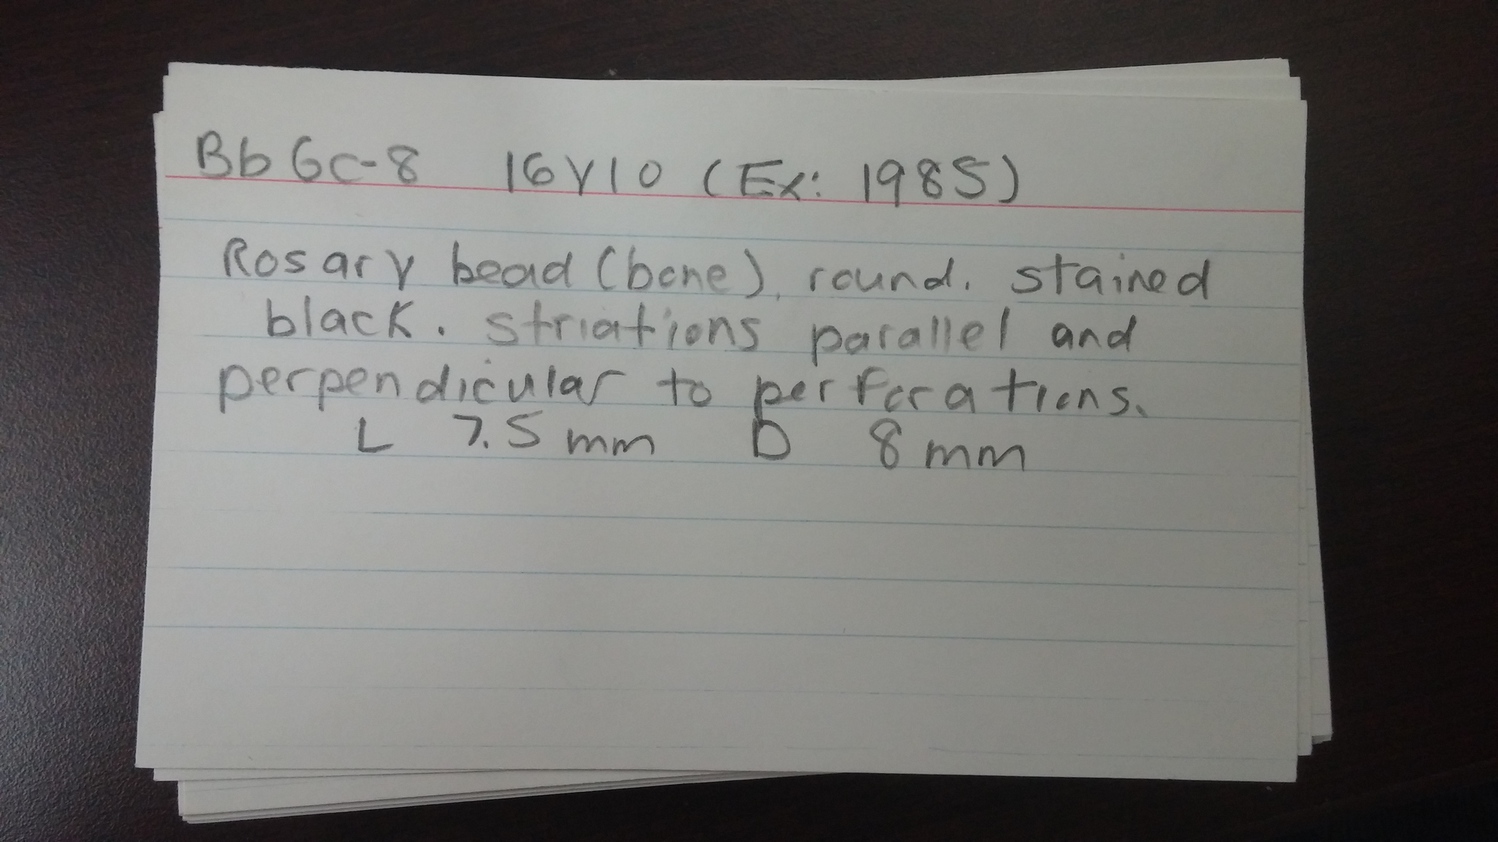 Bb Gc-8 16Y10 (Ex: 1985)
Rosary bead (bone), round. stained
black. striations parallel and
perpendicular to perforations.
L 7.5 mm D 8 mm